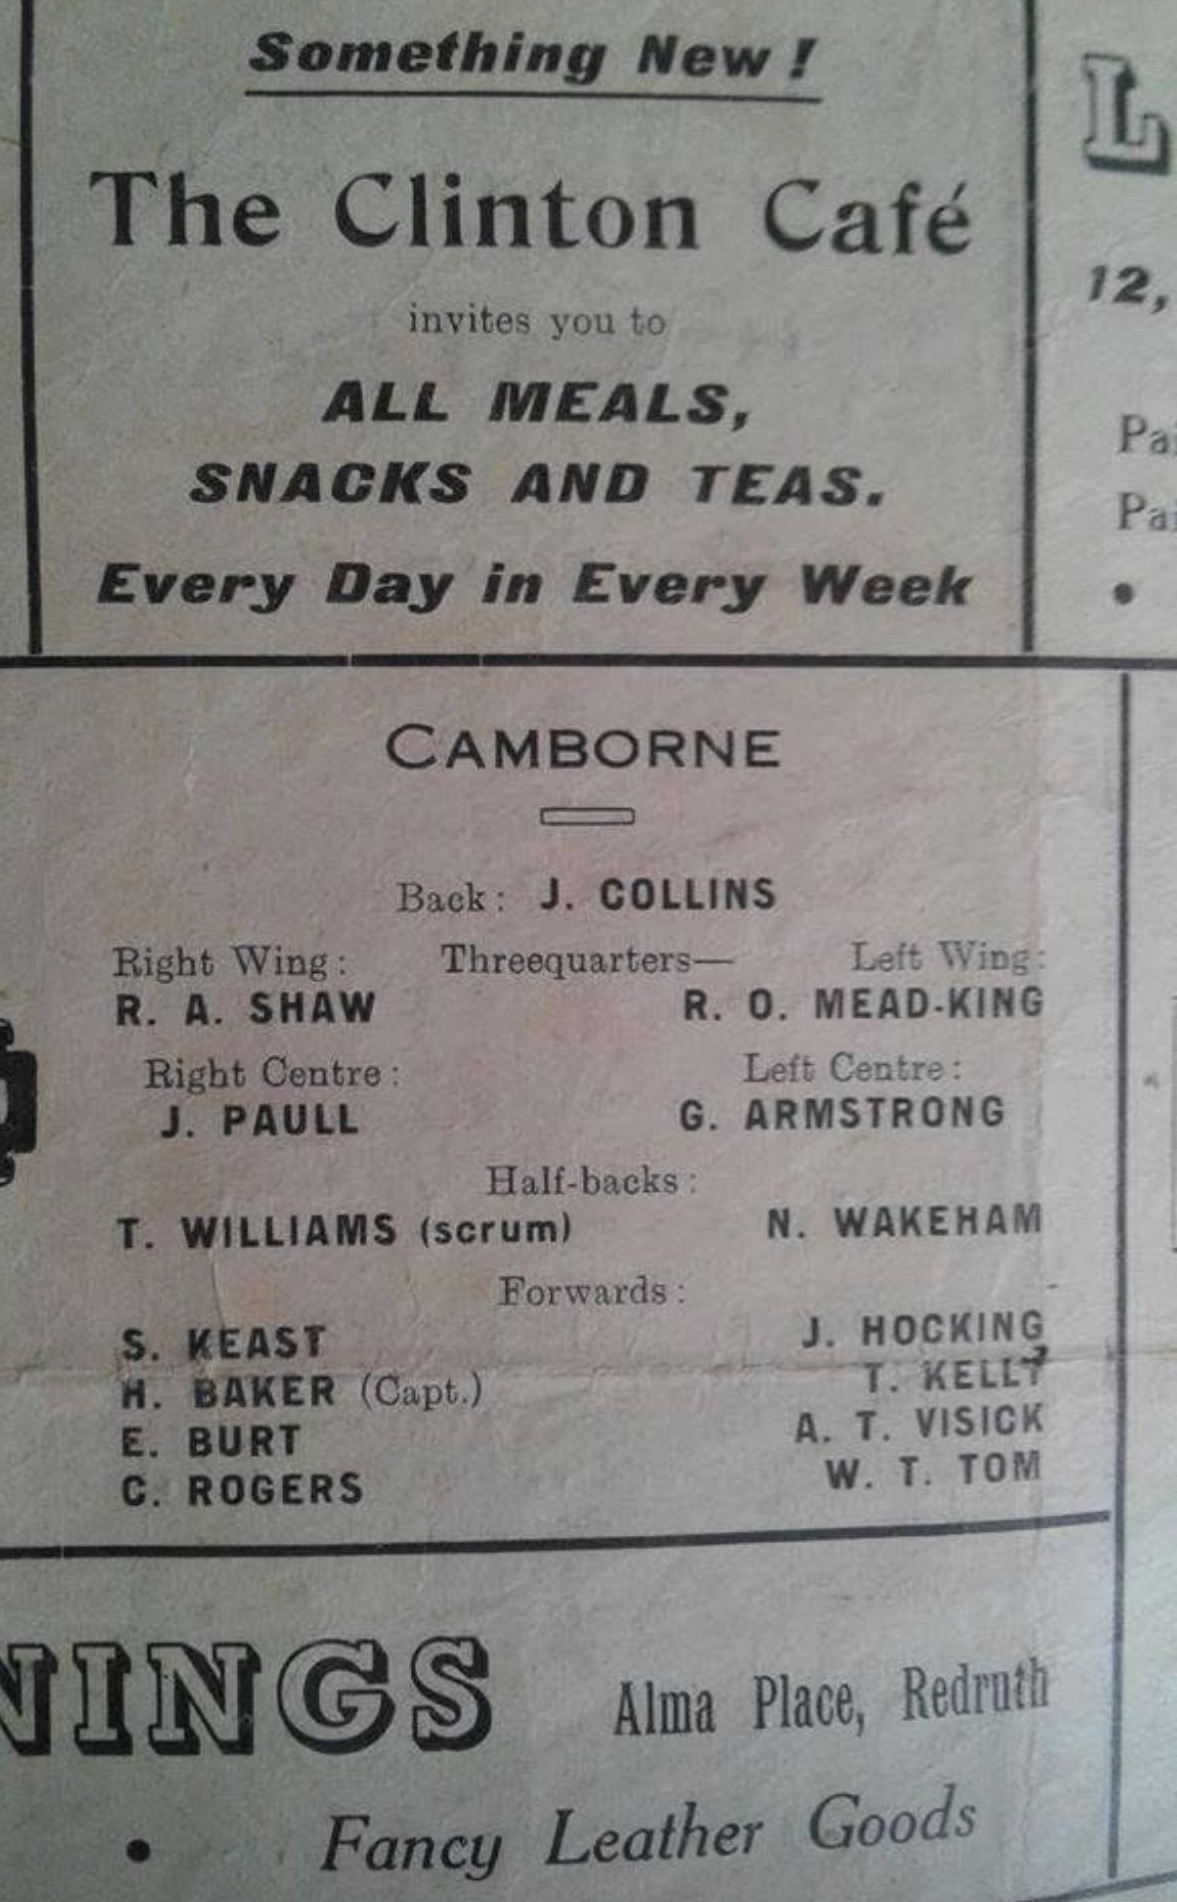 Something New !
The Clinton Café
invites you to
ALL MEALS,
SNACKS AND TEAS.
Every Day in Every Week
L
12,
Pai
Pai
•
CAMBORNE
Back : J. COLLINS
Right Wing : Threequarters— Left Wing :
R. A. SHAW R. O. MEAD-KING
Right Centre : Left Centre :
J. PAULL G. ARMSTRONG
Half-backs :
T. WILLIAMS (scrum) N. WAKEHAM
Forwards :
S. KEAST J. HOCKING
H. BAKER (Capt.) T. KELLY
E. BURT A. T. VISICK
C. ROGERS W. T. TOM
NINGS Alma Place, Redruth
• Fancy Leather Goods